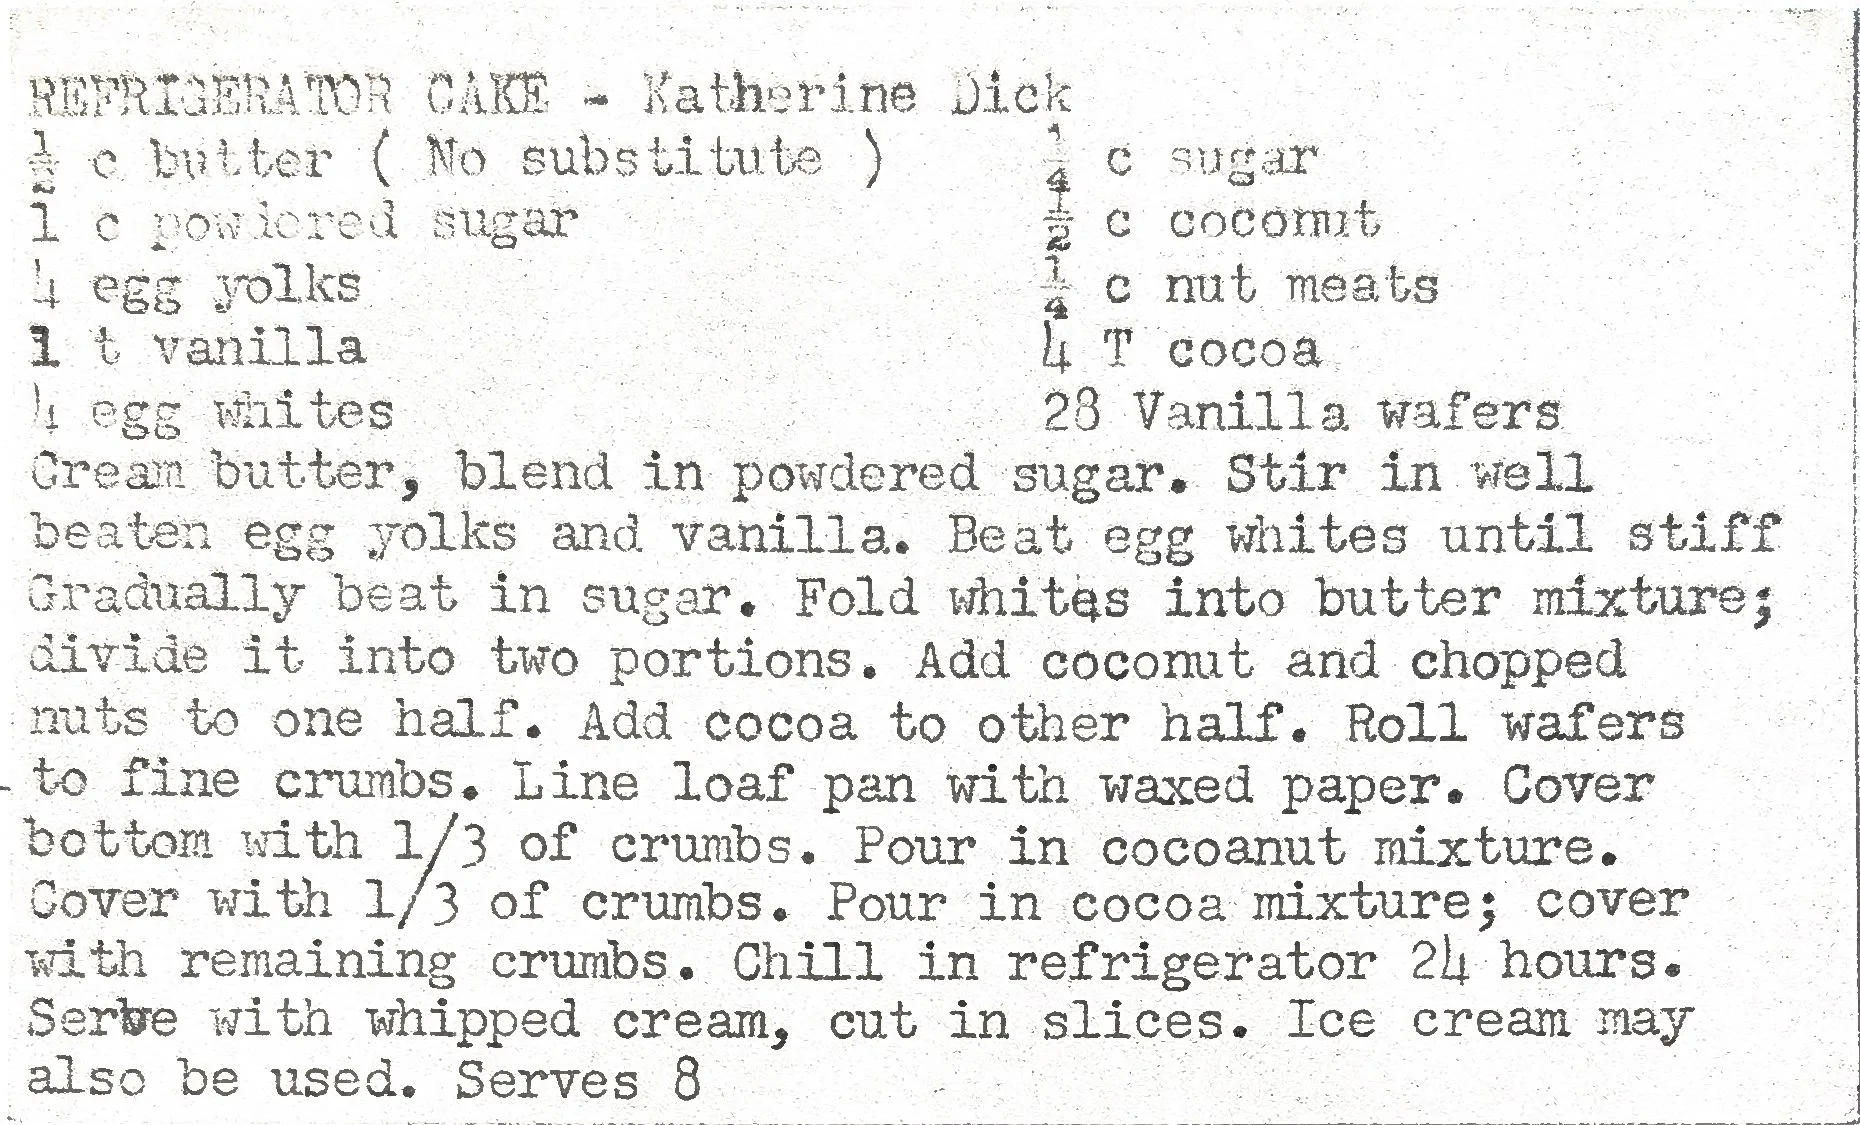 REFRIGERATOR CAKE - Katherine Dick
½ c butter ( No substitute ) ¼ c sugar
1 c powdered sugar ½ c coconut
4 egg yolks ¼ c nut meats
1 t vanilla 4 T cocoa
4 egg whites 28 Vanilla wafers
Cream butter, blend in powdered sugar. Stir in well
beaten egg yolks and vanilla. Beat egg whites until stiff
Gradually beat in sugar. Fold whites into butter mixture;
divide it into two portions. Add coconut and chopped
nuts to one half. Add cocoa to other half. Roll wafers
to fine crumbs. Line loaf pan with waxed paper. Cover
bottom with 1/3 of crumbs. Pour in cocoanut mixture.
Cover with 1/3 of crumbs. Pour in cocoa mixture; cover
with remaining crumbs. Chill in refrigerator 24 hours.
Serve with whipped cream, cut in slices. Ice cream may
also be used. Serves 8